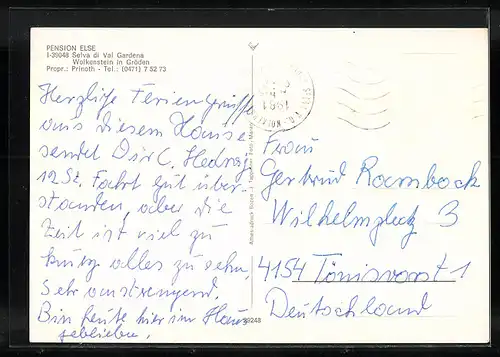 PENSION ELSE
I-39048 Selva di Val Gardena
Wolkenstein in Gröden
Propr.: Prinoth - Tel.: (0471) 7 52 73
Herzliche Feriengrüße
aus diesem Hause
sendet Dir C. Hedwig
12 St. Fahrt gut über-
standen, aber die
Zeit ist viel zu
kurz alles zu sehn,
Sehr anstrengend.
Bin heute hier im Haus
geblieben.
Frau
Gertrud Rambock
Wilhelmplatz 3
4154 Tönisvorst 1
Deutschland
39248